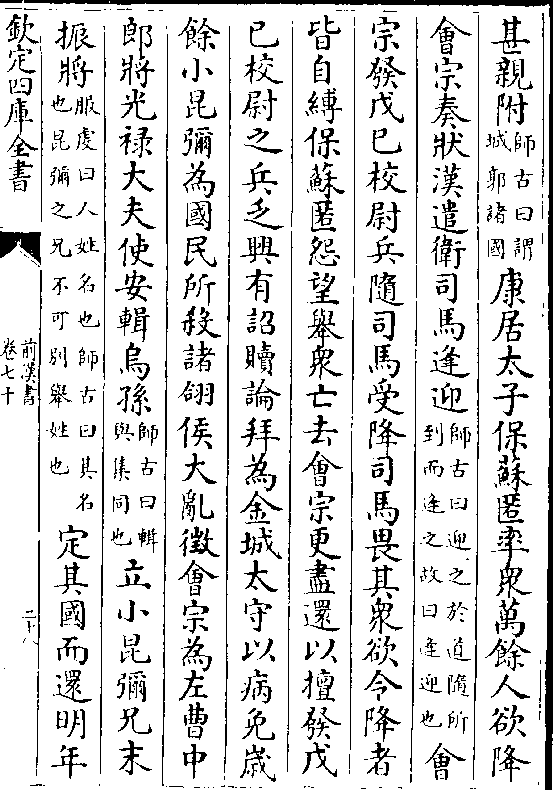 甚親附師古曰謂城郭諸國康居太子保蘇匿率衆萬餘人欲降
會宗奏狀漢遣衛司馬逢迎師古曰迎之於道隨所到而逢之故曰逢迎也會
宗發戊己校尉兵隨司馬受降司馬畏其衆欲令降者
皆自縛保蘇匿怨望舉衆亡去會宗更盡還以擅發戊
己校尉之兵乏興有詔贖論拜為金城太守以病免歲
餘小昆彌為國民所殺諸翖侯大亂徵會宗為左曹中
郎將光禄大夫使安輯烏孫師古曰輯與集同也立小昆彌兄末
振將服虔曰人姓名也師古曰其名也昆彌之兄不可别舉姓也定其國而還明年
欽定四庫全書
前漢書
卷七十
二十八